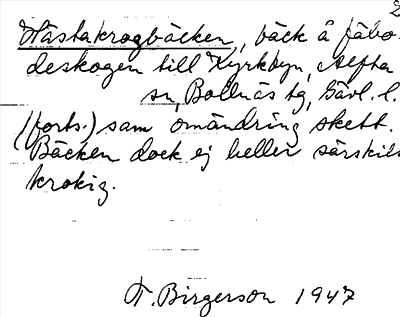 2
Hästakrogbäcken, bäck å fäbo-
deskogen till Kyrkbyn, Alfta
sn, Bollnäs tg, Gävl. l.
(forts.) sam omändring skett.
Bäcken dock ej heller särskilt
krokig.
T. Birgerson 1947